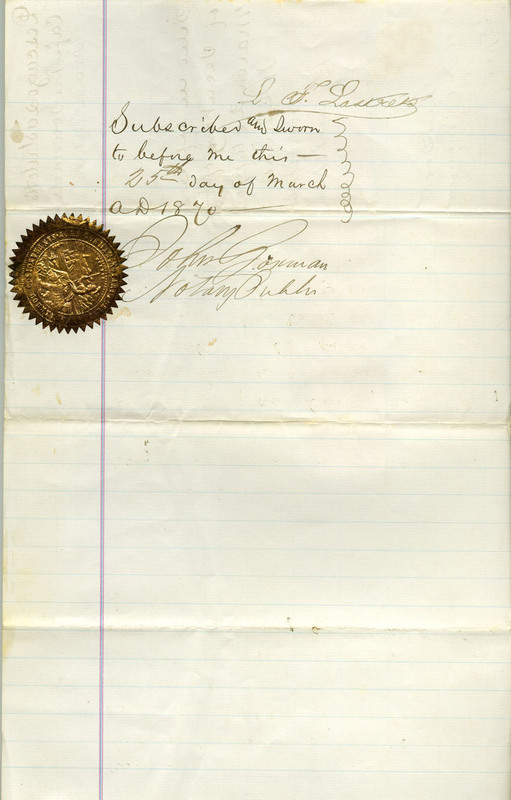 Subscribed and Sworn
to before me this —
25th day of March
AD 1870 —
John
Notary Public